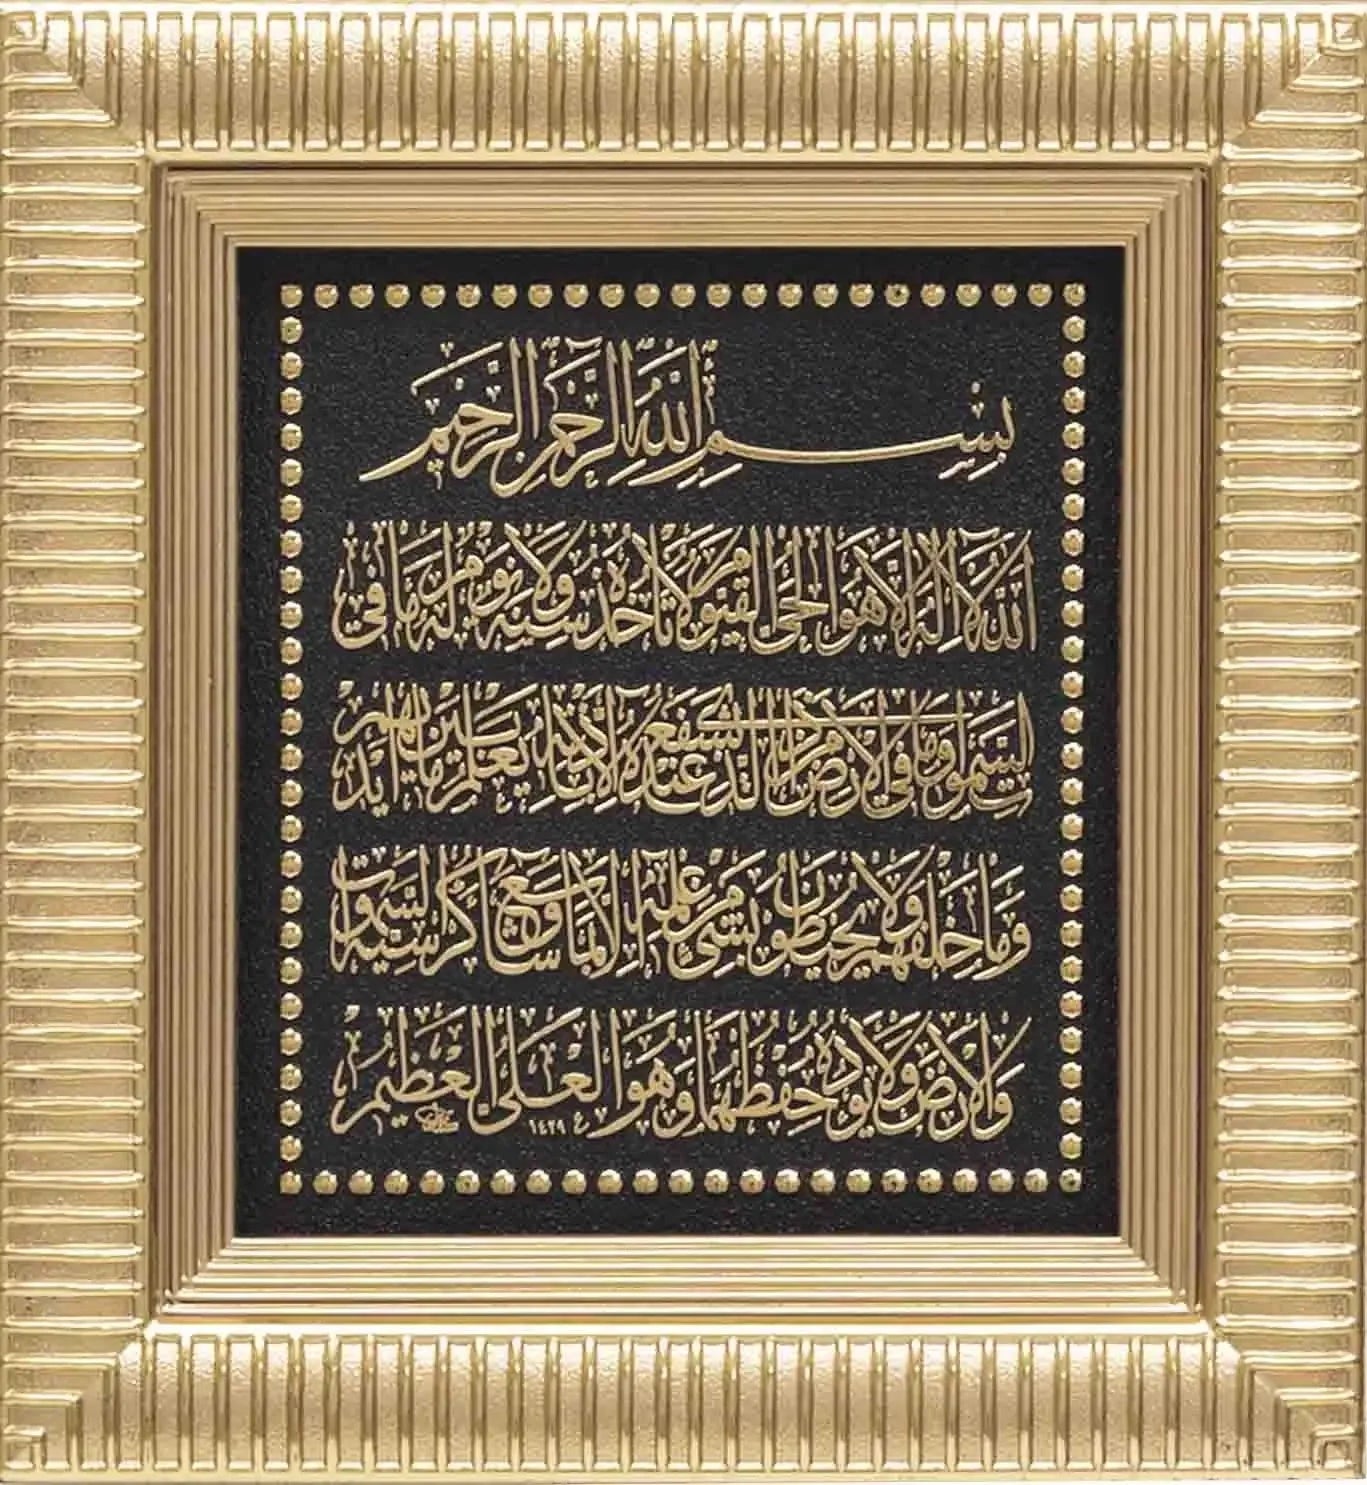 بِسْمِ اللَّهِ الرَّحْمَٰنِ الرَّحِيمِ
اللَّهُ لَا إِلَٰهَ إِلَّا هُوَ الْحَيُّ الْقَيُّومُ لَا تَأْخُذُهُ سِنَةٌ وَلَا نَوْمٌ لَهُ مَا فِي
السَّمٰوَاتِ وَمَا فِي الْأَرْضِ مَنْ ذَا الَّذِي يَشْفَعُ عِنْدَهُ إِلَّا بِإِذْنِهِ يَعْلَمُ مَا بَيْنَ أَيْدِيهِمْ
وَمَا خَلْفَهُمْ وَلَا يُحِيطُونَ بِشَيْءٍ مِنْ عِلْمِهِ إِلَّا بِمَا شَاءَ وَسِعَ كُرْسِيُّهُ السَّمٰوَاتِ
وَالْأَرْضَ وَلَا يَئُودُهُ حِفْظُهُمَا وَهُوَ الْعَلِيُّ الْعَظِيمُ
١٤٢٩